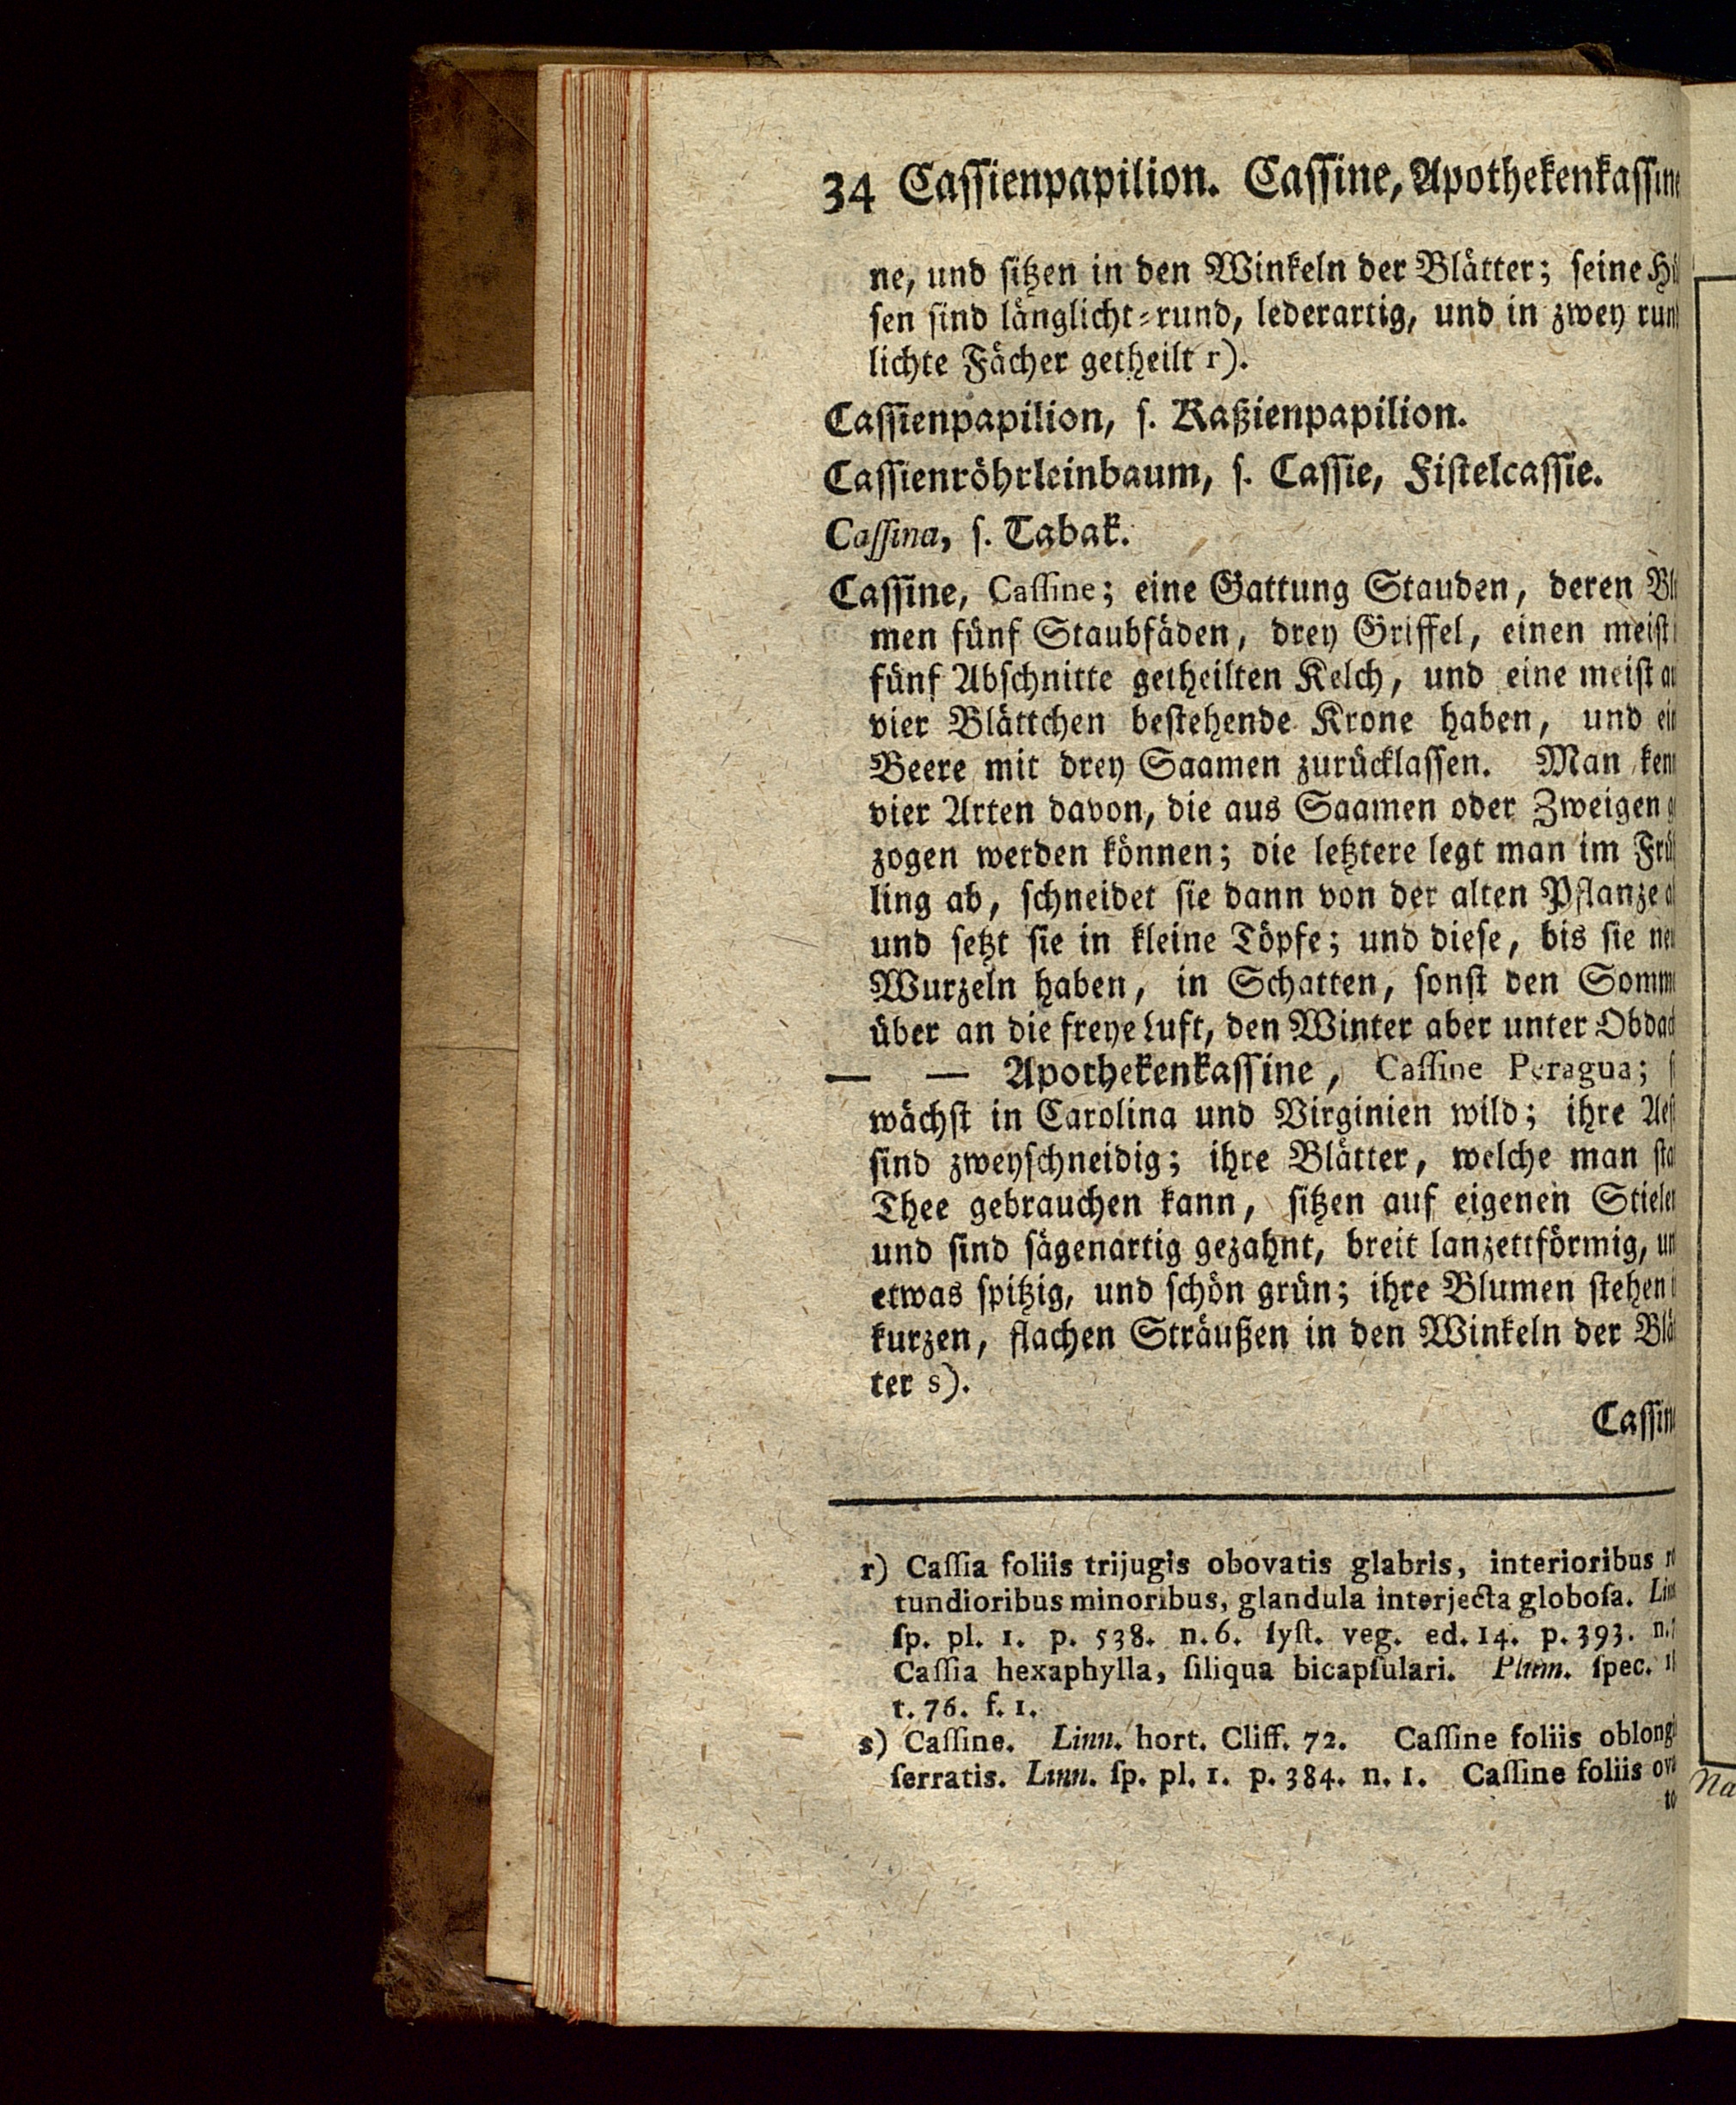 34 Cassienpapilion. Cassine, Apothekenkassine
ne, und sitzen in den Winkeln der Blätter; seine
sen sind länglicht-rund, lederartig, und in zwey
lichte Fächer getheilt r).
Cassienpapilion, s. Kaßienpapilion.
Cassienröhrleinbaum, s. Cassie, Fistelcassie.
Cassina, s. Tabak.
Cassine, Cassine; eine Gattung Stauden, deren
men fünf Staubfäden, drey Griffel, einen meist
fünf Abschnitte getheilten Kelch, und eine meist
vier Blättchen bestehende Krone haben, und
Beere mit drey Saamen zurücklassen. Man
vier Arten davon, die aus Saamen oder Zweigen
zogen werden können; die letztere legt man im
ling ab, schneidet sie dann von der alten Pflanze
und setzt sie in kleine Töpfe; und diese, bis sie
Wurzeln haben, in Schatten, sonst den
über an die freye Luft, den Winter aber unter
— — Apothekenkassine, Cassine Peragua;
wächst in Carolina und Virginien wild; ihre
sind zweyschneidig; ihre Blätter, welche man
Thee gebrauchen kann, sitzen auf eigenen
und sind sägenartig gezahnt, breit lanzettförmig,
etwas spitzig, und schön grün; ihre Blumen stehen
kurzen, flachen Sträußen in den Winkeln der
ter s).
r) Cassia foliis trijugis obovatis glabris, interioribus
tundioribus minoribus, glandula interjecta globosa.
sp. pl. 1. p. 538. n. 6. syst. veg. ed. 14. p. 393.
Cassia hexaphylla, siliqua bicapsulari. Plum. spec.
t. 76. f. 1.
s) Cassine. Linn. hort. Cliff. 72. Cassine foliis
serratis. Linn. sp. pl. 1. p. 384. n. 1. Cassine foliis